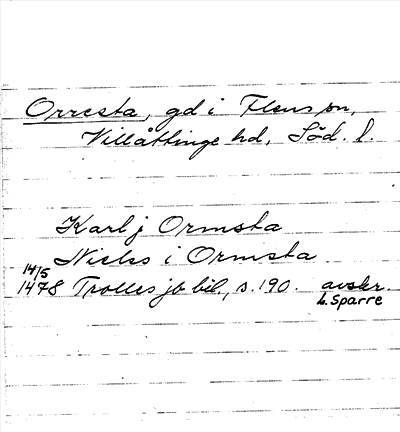 Orresta, gd i Flens sn,
Villåttinge hd, Söd. l.
Karl j Ormsta
Niclis i Ormsta
14/5
1478 Trolles jb bil., s. 190. avskr.
L. Sparre